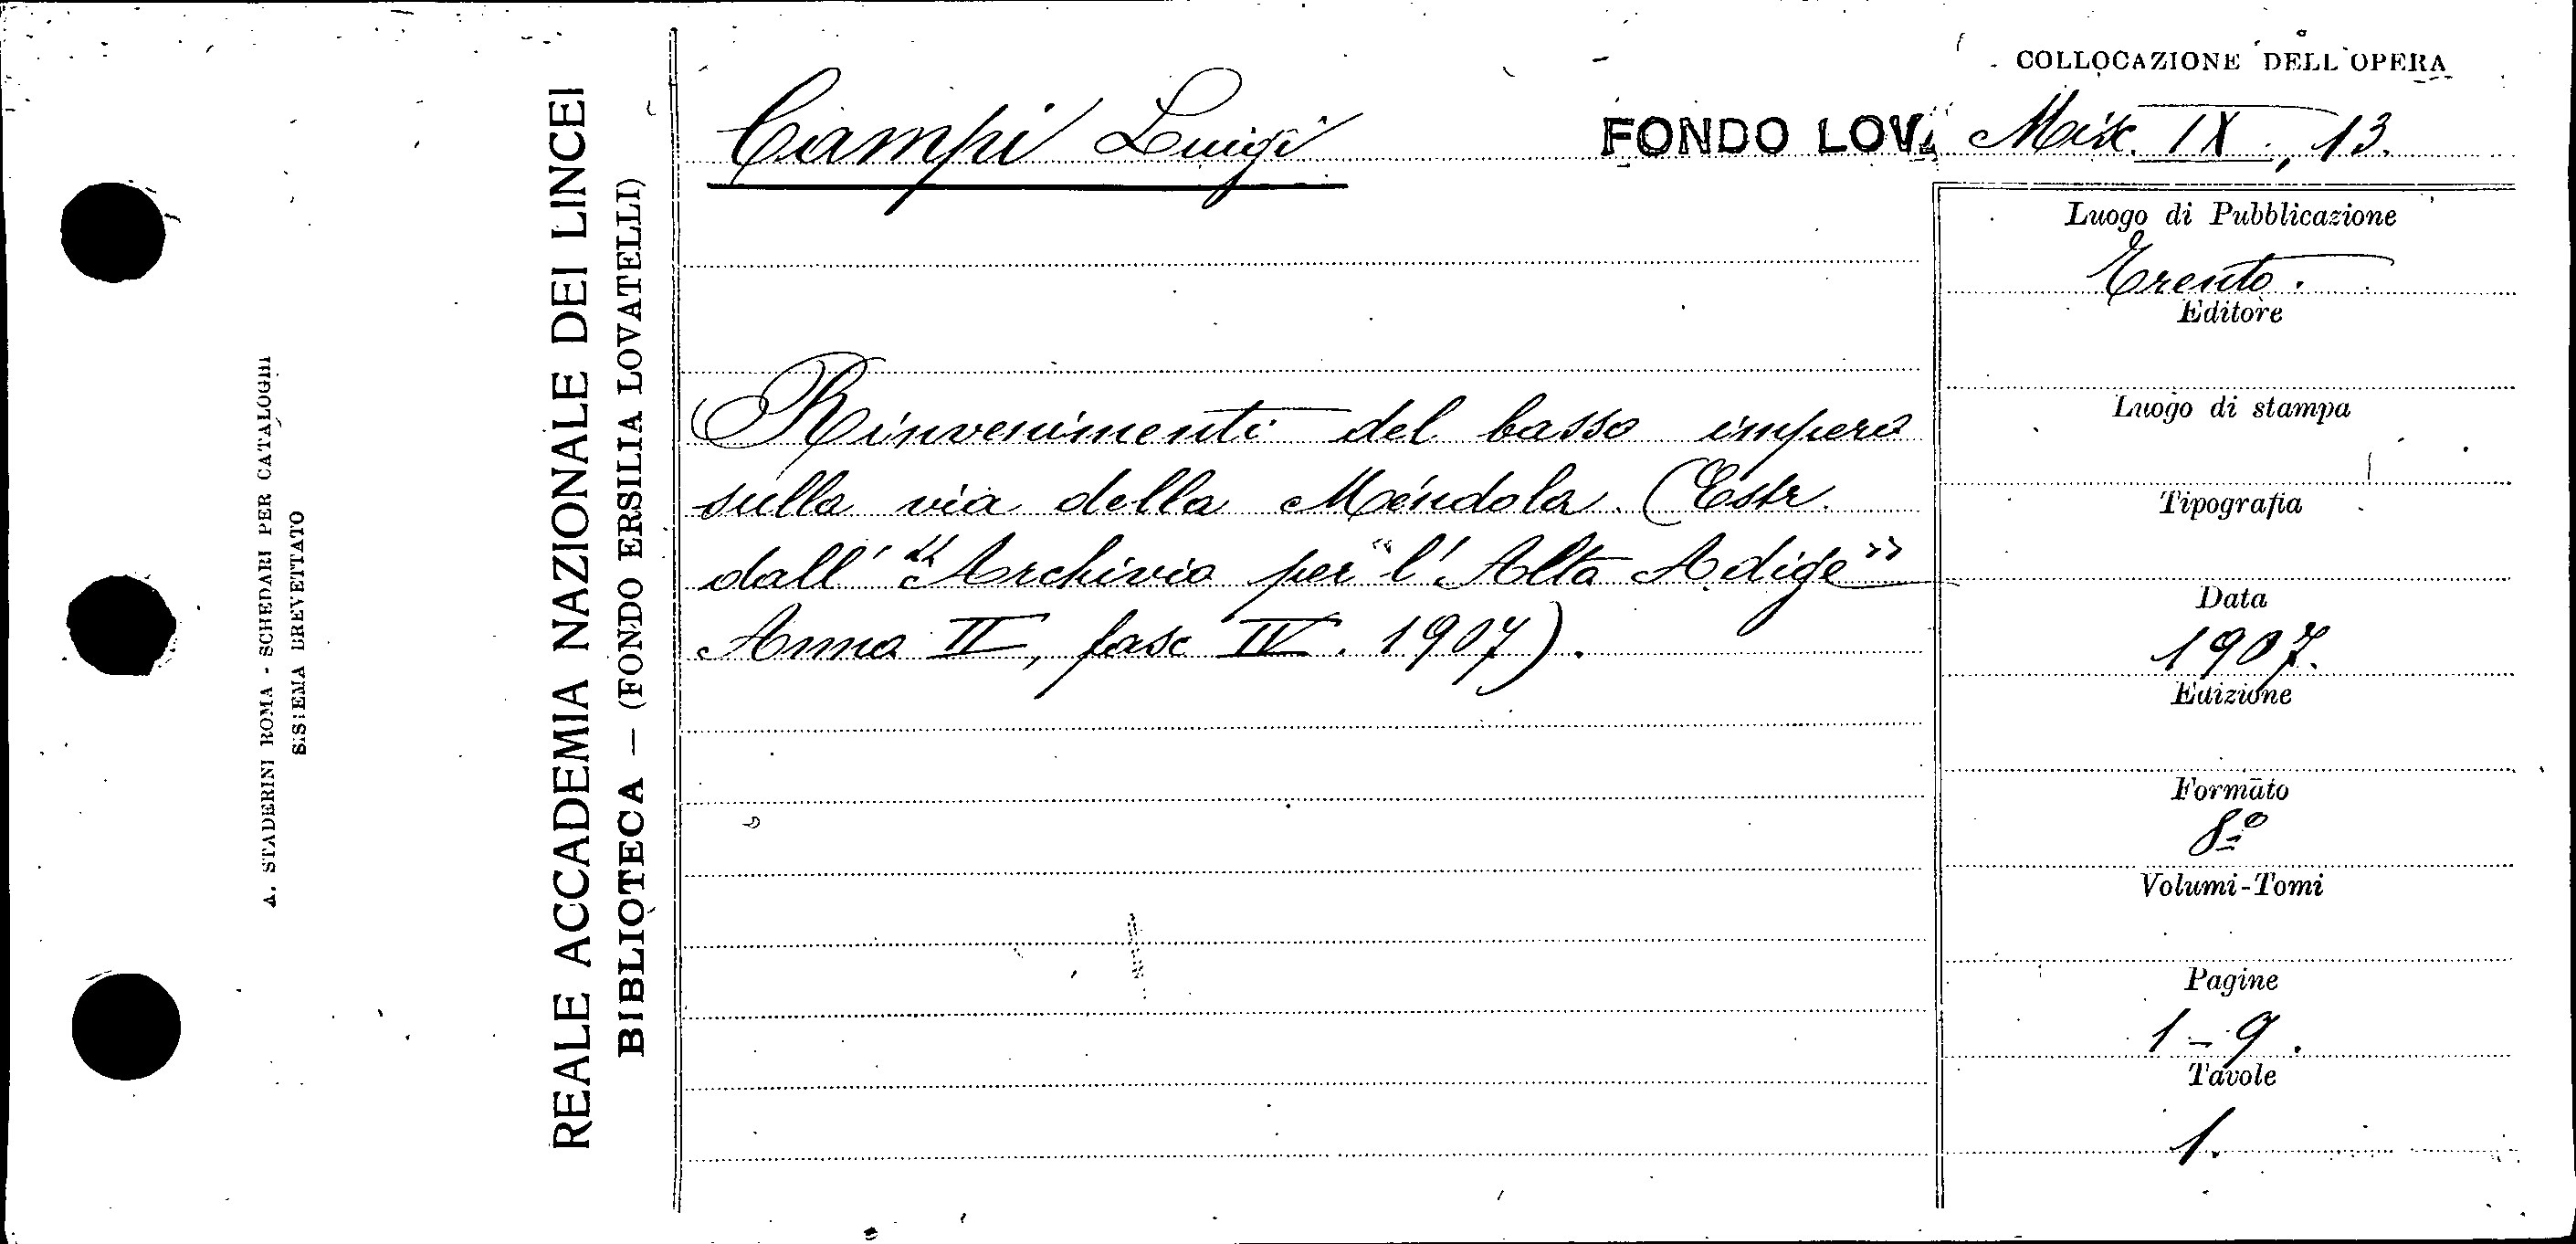 A. STADERINI ROMA - SCHEDARI PER CATALOGHI
SISTEMA BREVETTATO
REALE ACCADEMIA NAZIONALE DEI LINCEI
BIBLIOTECA — (FONDO ERSILIA LOVATELLI)
Campi Luigi
FONDO LOV.
COLLOCAZIONE DELL'OPERA
Misc. IX., 13.
Rinvenimenti del basso impero
sulla via della Mendola. (Estr.
dall' "Archivio per "l' Alto Adige"
Anno II, fasc IV. 1907).
Luogo di Pubblicazione
Trento.
Editore
Luogo di stampa
Tipografia
Data
1907.
Edizione
Formato
8º
Volumi-Tomi
Pagine
1-9.
Tavole
1.